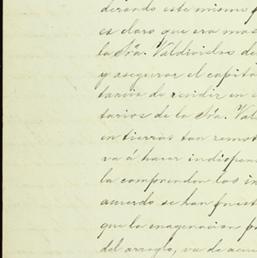 derando este mismo
es claro que era mas
la Sra. Valdivielso de
y asegurar el capita
tarios de residir en
tarios de la Sra. Val
en tierras tan remot
va á hacer indispen
la comprendan los in
acuerdo se han
que la imaginacion
del arreglo, va de acue